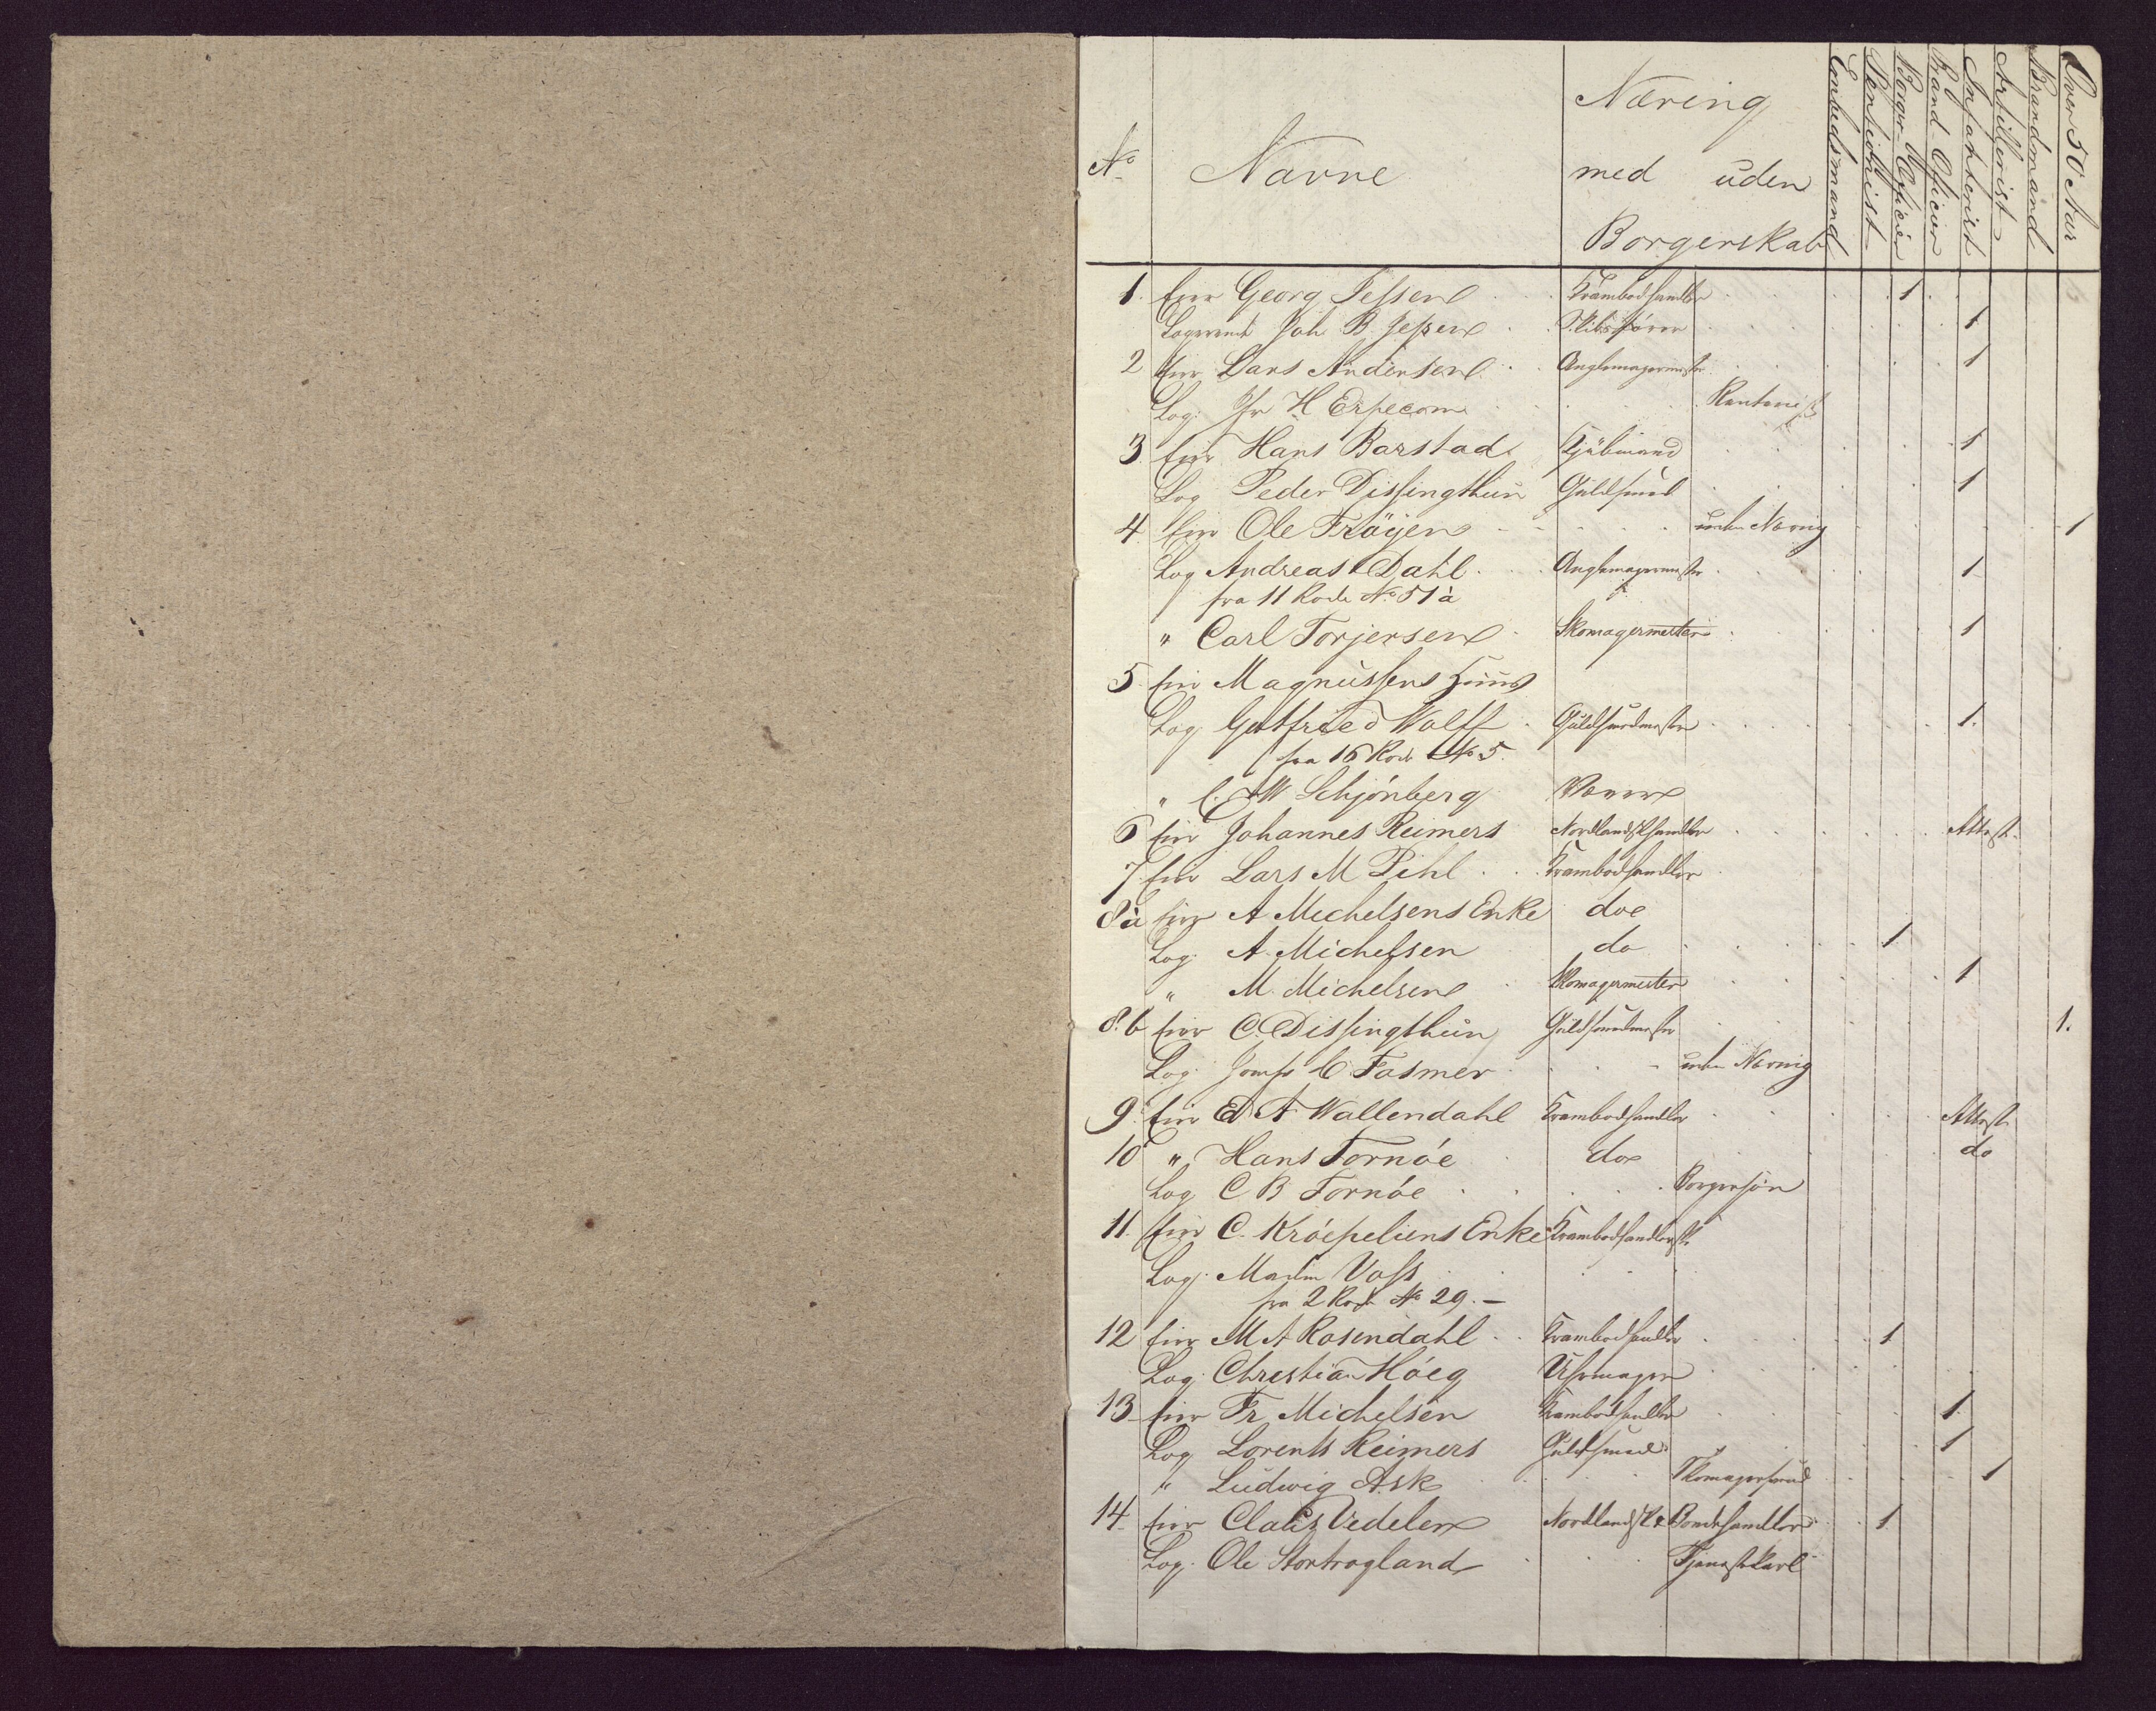 No
Navne
Næring
med uden
Borgerskab
Embedsmand
Borger Officier
Brand Officier
Infanterist
Artillerist
Brandmand
Over 50 Aar
1. Eier Georg Jessen Krambodhandler 1
Logerende Joh B. Jessen Skibsfører 1
2 Eier Lars Andersen 1
Log. Jfr H Erpecom
3. Eier Hans Barstad Kjöbmand 1
Log Peder Dissingthun Guldsmed 1
4. Eier Ole Fröÿen uden Næring 1
Log Andreas Dahl 1
fra 11 Rode No 51 a
" Carl Torjersen Skomagermester 1
5. Eier Magnussens Huus
Log. Gottfried Wolff Guldsmedmester 1.
fra 16 Rode No 5.
" C. W Schjönberg
6 Eier Johannes Reimers Nordlandskhandler Attest.
7. Eier Lars M Pihl Krambodhandler
8 a Eier A Michelsens Enke do
Log. A. Michelsen do 1
" M. Michelsen Skomagermester 1
8. b Eier C. Dissingthun Guldsmedmester 1.
Log. Jomfr C. Fasmer uden Næring
9. Eier Ed A Wallendahl Krambodhandler Attest.
10 " Hans Fornöe do do
Log C B Fornöe Borgersön
11. Eier C. Kröepeliens Enke Krambodhandlerske
Log. Madm Voss
fra 2 Rode No 29. –
12 Eier M A Rosendahl Krambodhandler 1
Log. Christian Höeg Uhrmager
13 Eier Fr. Michelsen Krambodhandler 1.
Log Lorents Reimers Guldsmed 1
" Ludwig Ask Skomagersvend 1
14. Eier Claus Vedeler Nordlandsk & Bondehandler 1
Log. Ole Stortragland Tjenestekarl